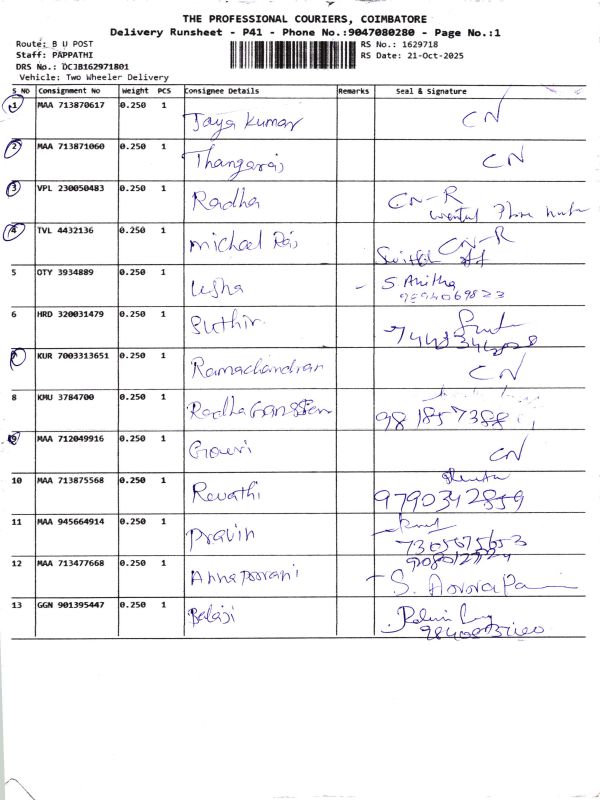 THE PROFESSIONAL COURIERS, COIMBATORE
Delivery Runsheet - P41 - Phone No.:9047080280 - Page No.:1
Route: B U POST
Staff: PAPPATHI
DRS No.: DCJB162971801
Vehicle: Two Wheeler Delivery
RS No.: 1629718
RS Date: 21-Oct-2025
S NO Consignment No Weight PCS Consignee Details Remarks Seal & Signature
1 MAA 713870617 0.250 1 Jaya Kumar CN
2 MAA 713871060 0.250 1 Thangaraj CN
3 VPL 230050483 0.250 1 Radha CN-R
Phone
4 TVL 4432136 0.250 1 michael Raj CN-R
off
5 OTY 3934889 0.250 1 Usha - S. Anitha
6 HRD 320031479 0.250 1 Suthir
7 KUR 7003313651 0.250 1 Ramachandran CN
8 KMU 3784700 0.250 1 Radha
9 MAA 712049916 0.250 1 Gowri CN
10 MAA 713875568 0.250 1 Revathi
9790342859
11 MAA 945664914 0.250 1 Pravin
12 MAA 713477668 0.250 1 Annapoorani
13 GGN 901395447 0.250 1 Balaji